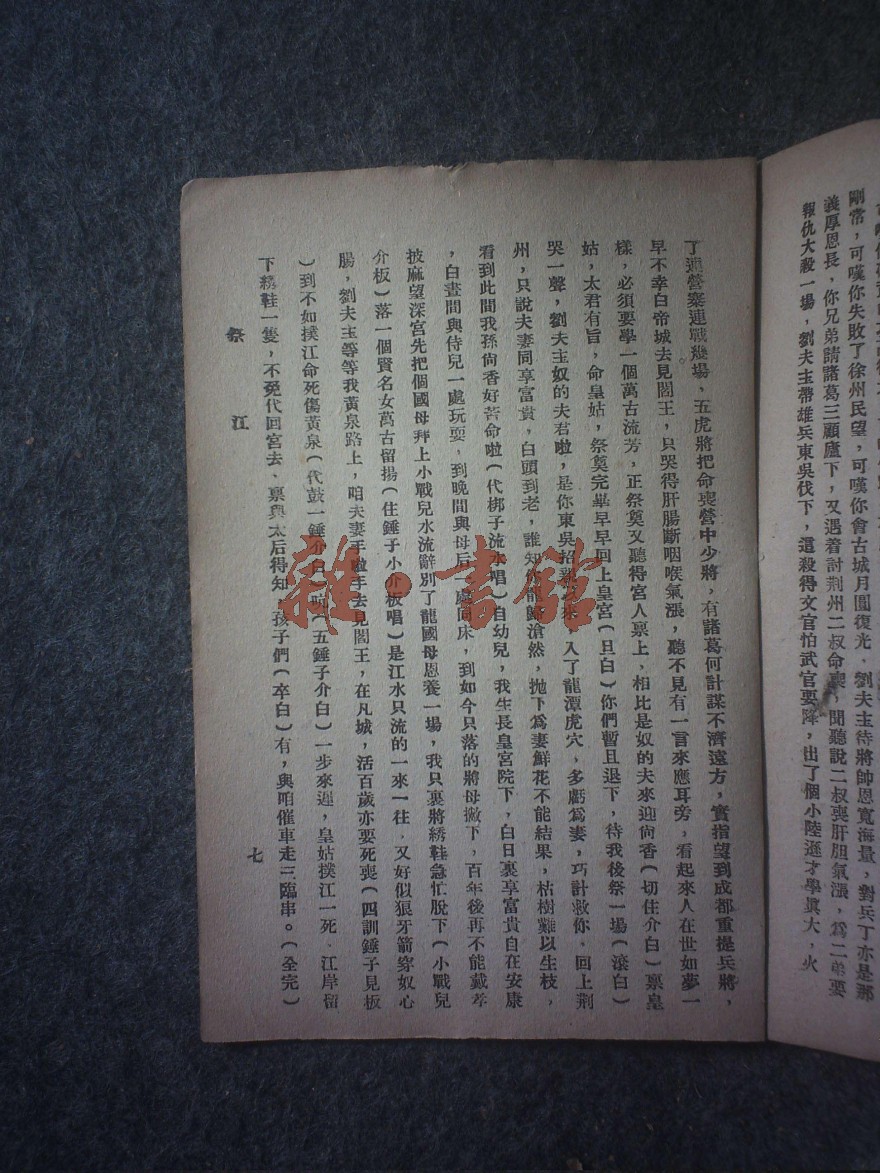 剛常，可嘆你失敗了徐州民望，可嘆你會古城月圓復光、劉夫主待將帥恩寬海量，對兵丁亦是那
義厚恩長，你兄弟請諸葛三顧廬下，又遇着討荆州二叔命喪，聞聽說二叔喪肝胆氣漲，爲二弟要
報仇大殺一場，劉夫主帶雄兵東吳伐下，這殺得文官怕武官要降，出了個小陸遜才學眞大，火
了連營寨連戰幾場，五虎將把命喪營中少將，有諸葛何計謀不濟遠方，實指望到成都重提兵將，
早不幸白帝城去見閻王，只哭得肝腸斷咽喉氣漲，聽不見有一言來應耳旁，看起來人在世如夢一
樣，必須要學一個萬古流芳，正祭奠又聽得宮人禀上，相比是奴的夫來迎尙香（切住介白）禀皇
姑，太君有旨，命皇姑，祭奠完畢早早回上皇宮（旦白）你們暫且退下，待我後祭一場（滾白）
哭一聲，劉夫主奴的夫君啦，是你東吳招親，入了龍潭虎穴，多虧爲妻，巧計救你，回上荆
州，只說夫妻同享富貴，白頭到老，誰知龍歸滄然，抛下爲妻鮮花不能結果，枯樹難以生枝，
看到此間我孫尙香好苦命啦（代梆子流水唱）自幼兒，我生長皇宮院下，白日裏享富貴自在安康
，白晝間與侍兒一處玩耍，到晚間與母后一處同床，到如今只落的將母撇下，百年後再不能戴孝
披麻望深宮先把個國母拜上小戰兒水流辭別了龍國母恩養一場，我只裏將綉鞋急忙脫下（小戰兒
介板）落一個賢名女萬古留揚（住錘子小介板唱）是江水只流的一來一往，又好似狼牙箭穿奴心
腸，劉夫主等等我黃泉路上，咱夫妻手啦手去見閻王，在凡城，活百歲亦要死喪（四訓錘子見板
）到不如撲江命死傷黃泉（代鼓一錘介白）呀（五錘子介白）一步來遲，皇姑撲江一死、江岸留
下綉鞋一隻，不免代回宮去、禀與太后得知，孩子們（卒白）有，與咱催車走三臨串。（全完）
祭江
七
雜·書館